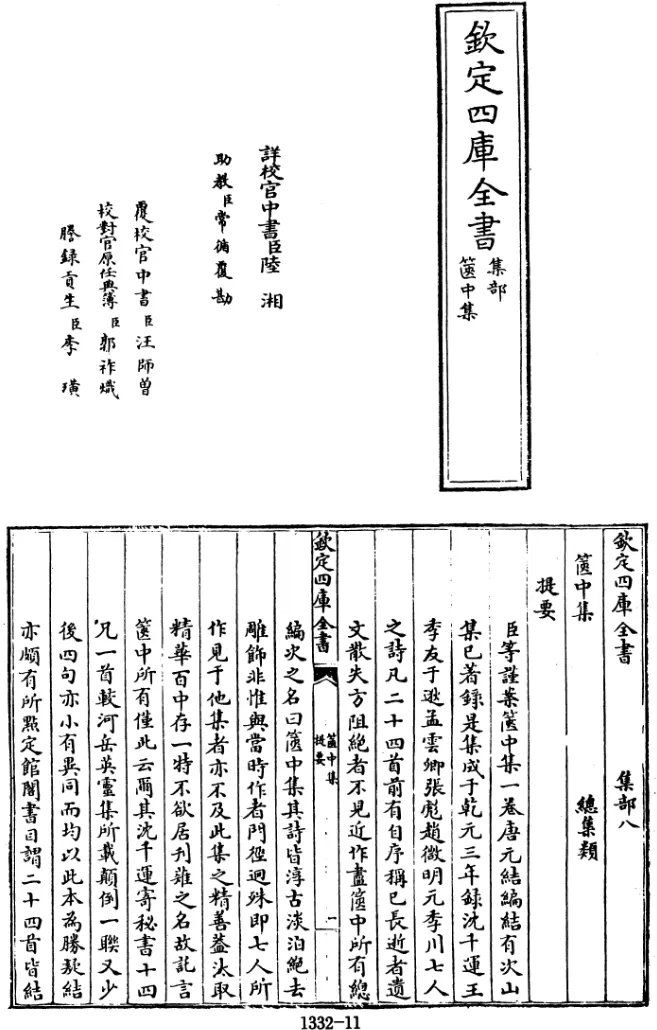 欽定四庫全書
集部
篋中集
詳校官中書臣陸湘
助教臣常循覆勘
覆校官中書臣汪師曾
校對官原任典簿臣郭祚熾
謄録貢生臣李璜
欽定四庫全書　集部八
篋中集　總集類
提要
臣等謹案篋中集一卷唐元結編結有次山
集已著録是集成于乾元三年録沈千運王
季友于逖孟雲卿張彪趙微明元季川七人
之詩凡二十四首前有自序稱已長逝者遺
文散失方阻絶者不見近作盡篋中所有總
欽定四庫全書
篋中集
提要
一
編次之名曰篋中集其詩皆淳古淡泊絶去
雕飾非惟與當時作者門徑迥殊即七人所
作見于他集者亦不及此集之精善蓋汰取
精華百中存一特不欲居刋薙之名故託言
篋中所有僅此云爾其沈千運寄秘書十四
兄一首較河岳英靈集所載顛倒一聯又少
後四句亦小有異同而均以此本為勝疑結
亦頗有所㸃定館閣書目謂二十四首皆結
1332-11